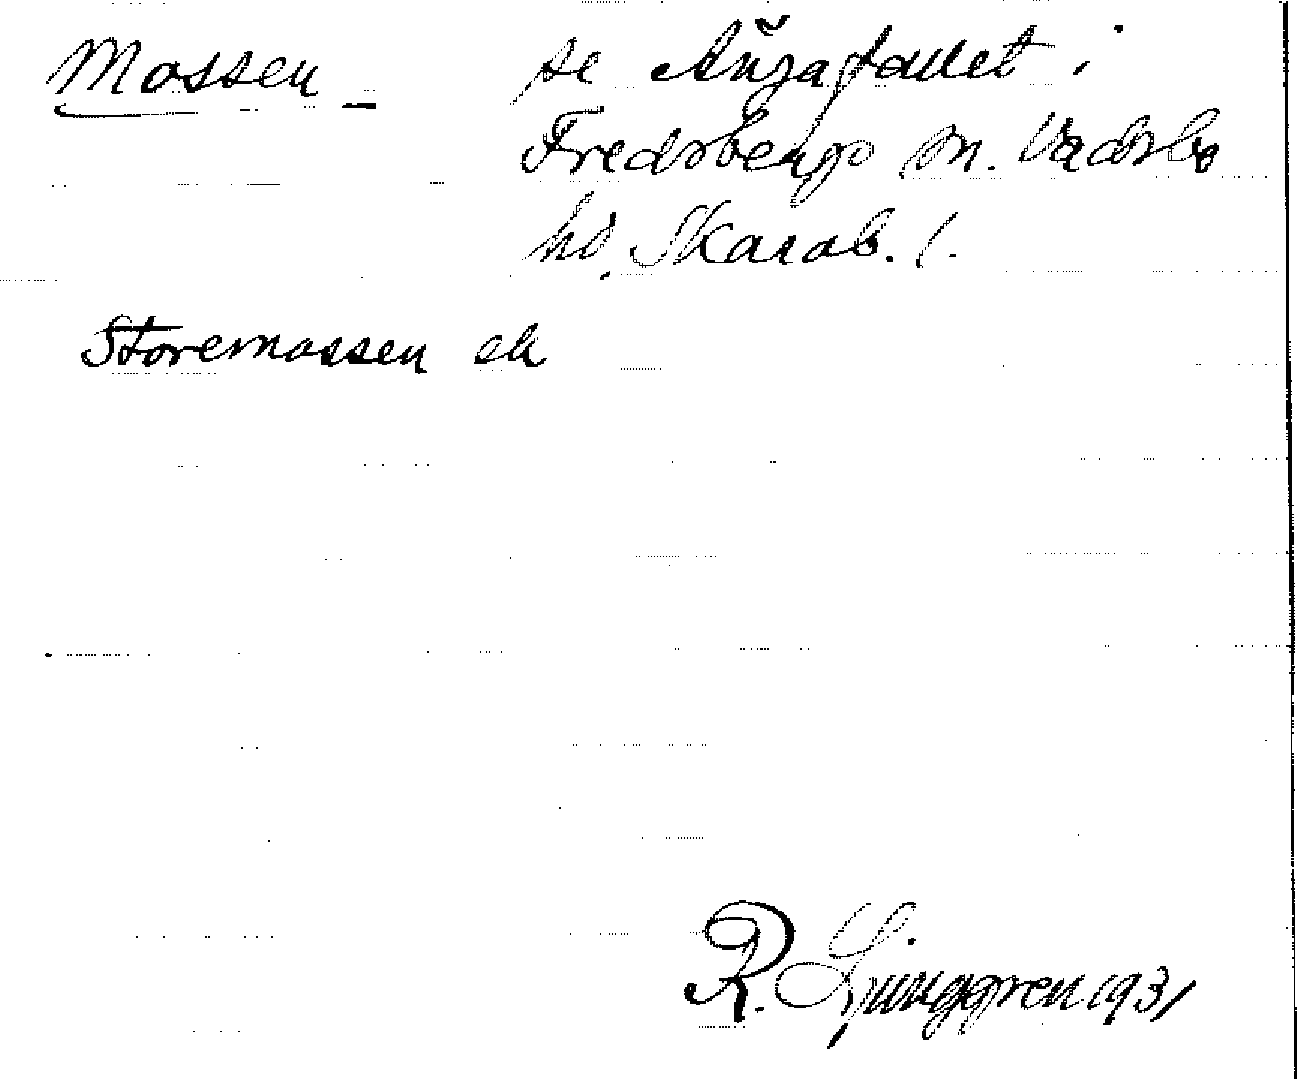 Mossen - se Ängafallet i
Fredsbergs sn. Vadsbo
hd. Skarab. l.
Storemossen ek
R. Ljunggren 1931